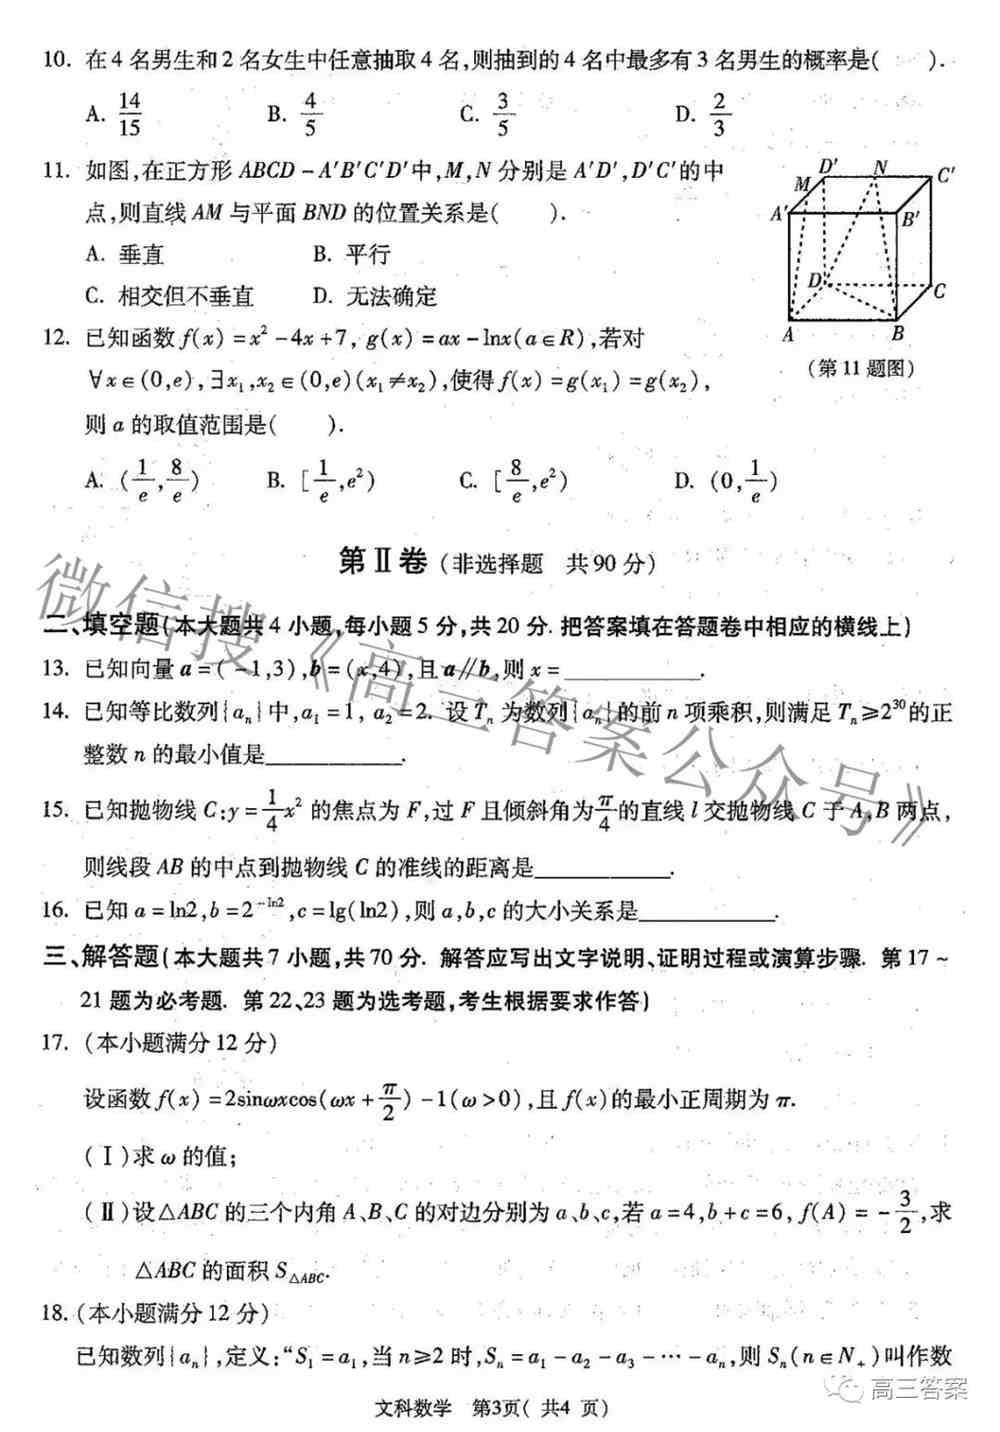 10. 在4名男生和2名女生中任意抽取4名,则抽到的4名中最多有3名男生的概率是(    ).
A. 14/15    B. 4/5    C. 3/5    D. 2/3
11. 如图,在正方形 ABCD-A'B'C'D'中,M,N 分别是 A'D',D'C'的中
点,则直线 AM 与平面 BND 的位置关系是(    ).
A. 垂直    B. 平行
C. 相交但不垂直    D. 无法确定
D' N C' M A' B' D C A B
(第11题图)
12. 已知函数 f(x)=x²-4x+7, g(x)=ax-lnx(a∈R),若对
∀x∈(0,e),∃x₁,x₂∈(0,e)(x₁≠x₂),使得 f(x)=g(x₁)=g(x₂),
则 a 的取值范围是(    ).
A. (1/e,8/e)    B. [1/e,e²)    C. [8/e,e²)    D. (0,1/e)
第Ⅱ卷(非选择题 共90分)
二、填空题(本大题共4小题,每小题5分,共20分. 把答案填在答题卷中相应的横线上)
13. 已知向量 a=(-1,3),b=(x,4),且 a∥b,则 x=____________.
14. 已知等比数列{aₙ}中,a₁=1, a₂=2. 设 Tₙ 为数列{aₙ}的前 n 项乘积,则满足 Tₙ≥2³⁰的正
整数 n 的最小值是____________.
15. 已知抛物线 C:y=1/4x² 的焦点为 F,过 F 且倾斜角为π/4的直线 l 交抛物线 C 于 A,B 两点,
则线段 AB 的中点到抛物线 C 的准线的距离是____________.
16. 已知 a=ln2,b=2^(-ln2),c=lg(ln2),则 a,b,c 的大小关系是____________.
三、解答题(本大题共7小题,共70分. 解答应写出文字说明、证明过程或演算步骤. 第17~
21题为必考题. 第22、23题为选考题,考生根据要求作答)
17. (本小题满分12分)
设函数 f(x)=2sinωxcos(ωx+π/2)-1(ω>0),且 f(x)的最小正周期为 π.
(Ⅰ)求 ω 的值;
(Ⅱ)设△ABC 的三个内角 A、B、C 的对边分别为 a、b、c,若 a=4,b+c=6, f(A)=-3/2,求
△ABC 的面积 S△ABC.
18. (本小题满分12分)
已知数列{aₙ},定义:“S₁=a₁,当 n≥2 时,Sₙ=a₁-a₂-a₃-…-aₙ,则 Sₙ(n∈N₊)叫作数
文科数学 第3页( 共4 页)
微信搜《高三答案公众号》
高三答案